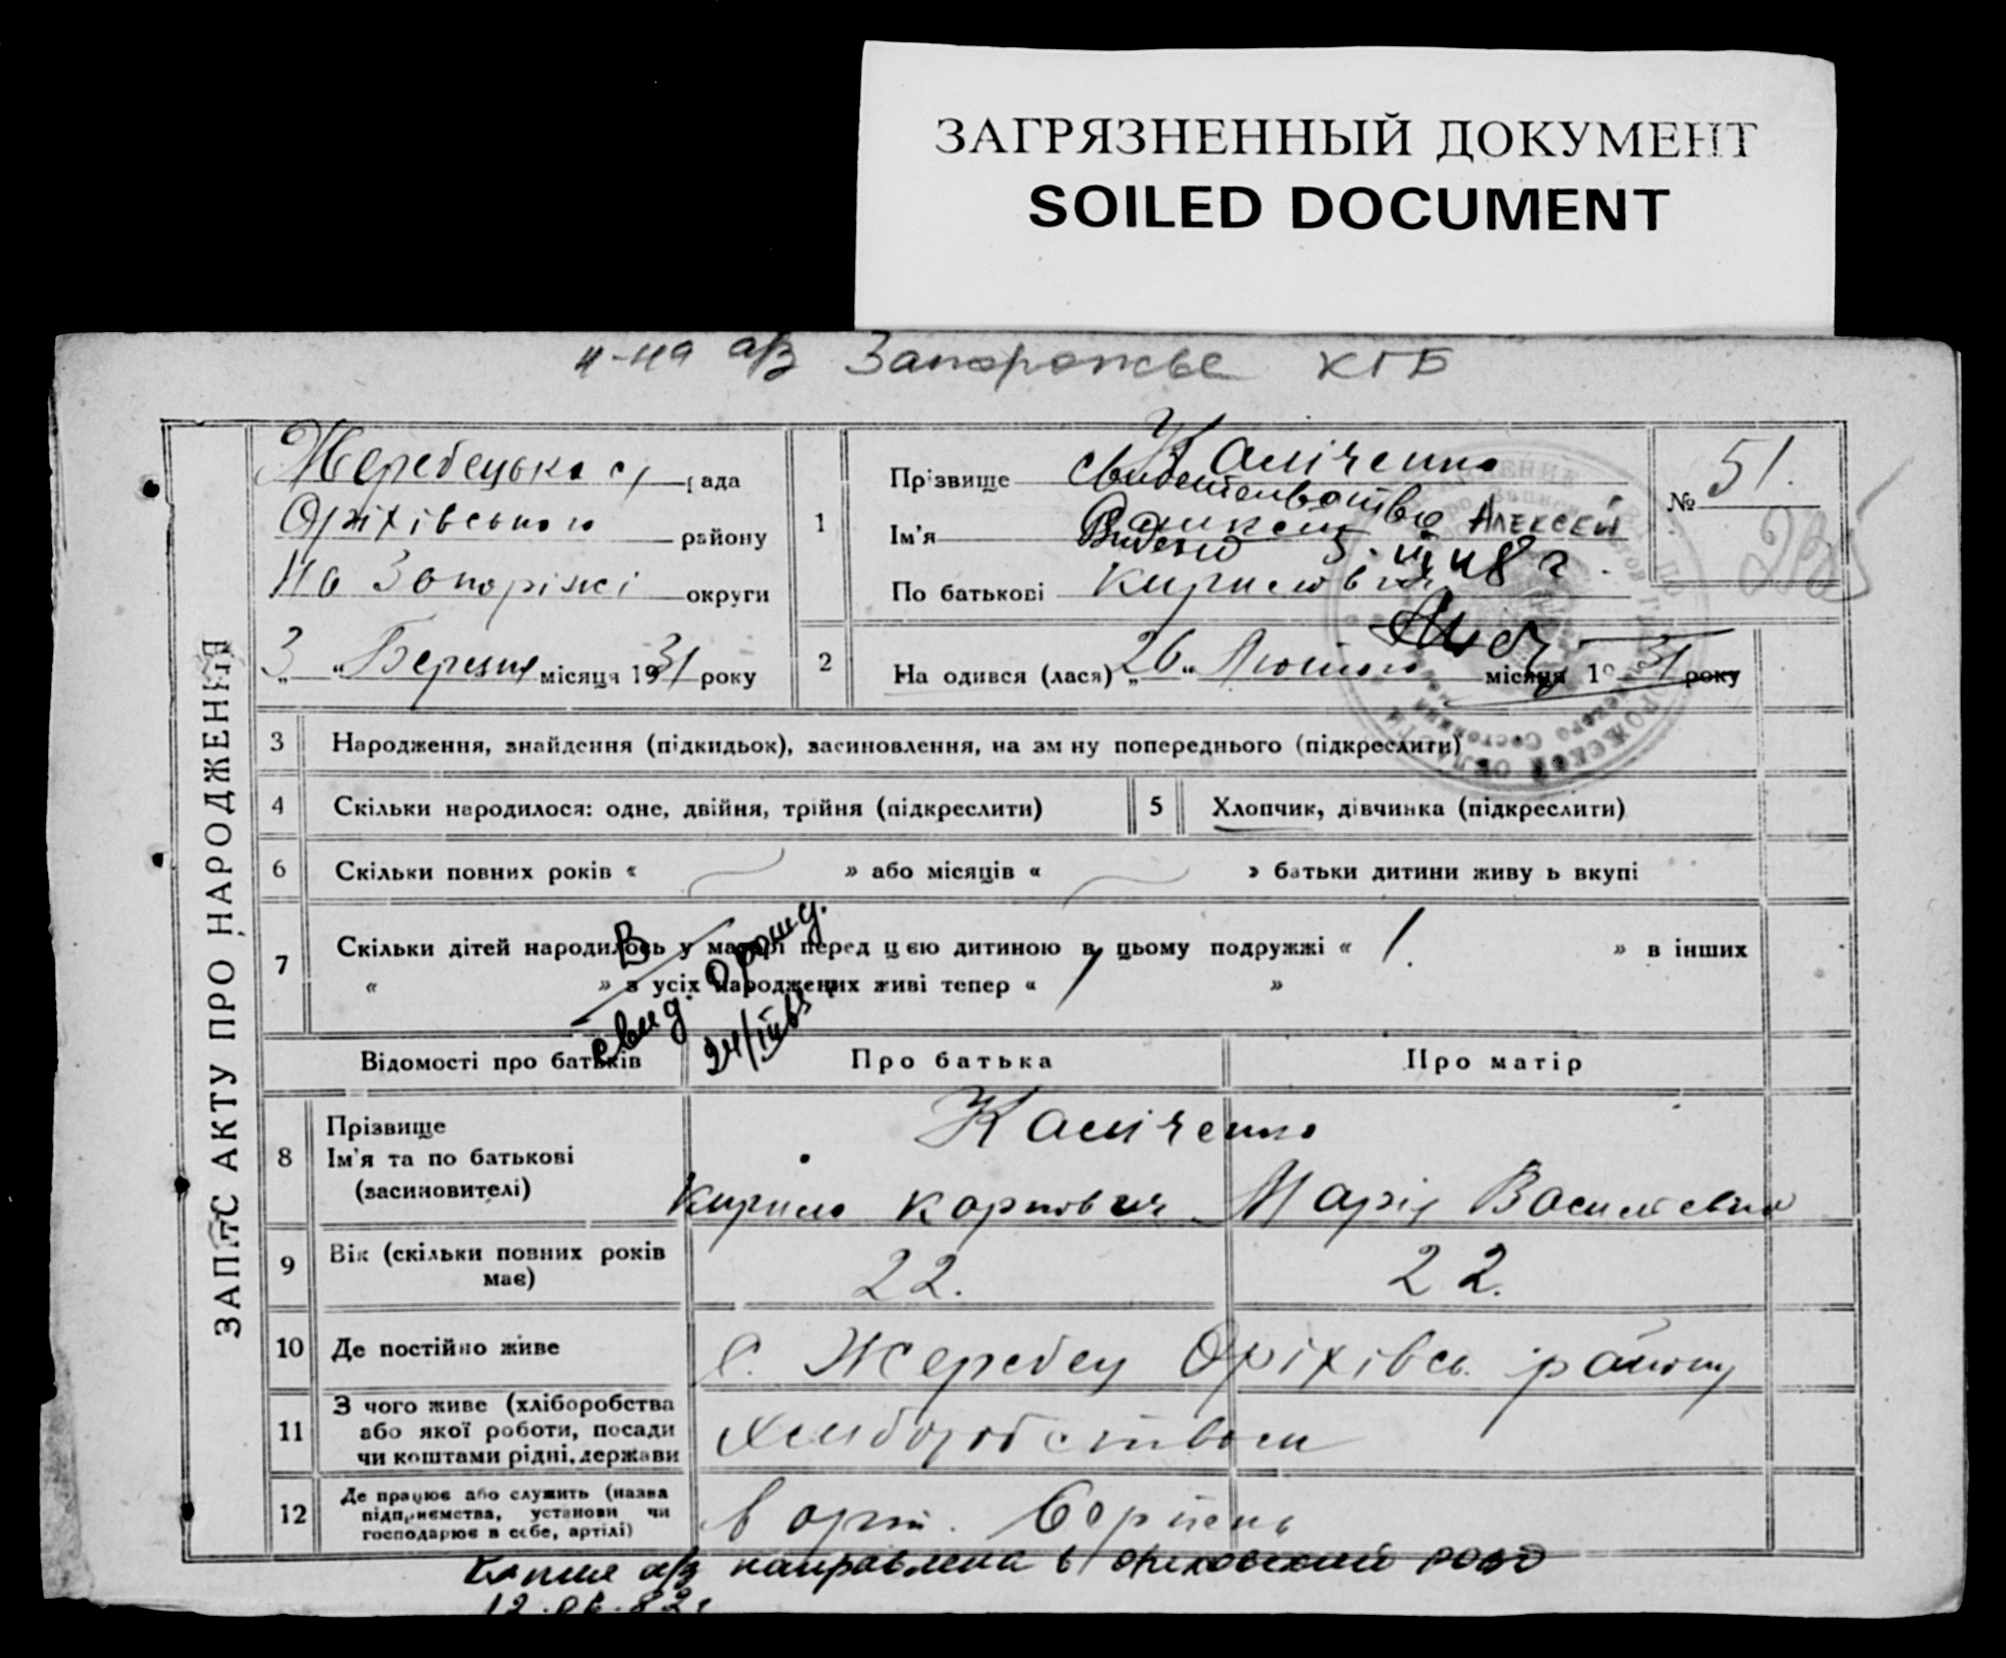 ЗАГРЯЗНЕННЫЙ ДОКУМЕНТ
SOILED DOCUMENT
а/з Запорожье КГБ
ЗАПИС АКТУ ПРО НАРОДЖЕННЯ
Жеребецька с/ рада
Оріхівського району
на Запоріжжі округи
„3„ Березня місяця 1931 року
1
Прізвище Камченко
Свидетельство
Ім'я Алексей
Выдано 5. III 48 г.
По батькові Кирилович
№ 51.
2
Народився (лася) „26„ Лютого місяця 1931 року
3 Народження, знайдення (підкидьок), засиновлення, на зміну попереднього (підкреслити)
4 Скільки народилося: одне, двійня, трійня (підкреслити)
5 Хлопчик, дівчинка (підкреслити)
6 Скільки повних років « » або місяців « » батьки дитини живуть вкупі
7 Скільки дітей народилось у матері перед цією дитиною в цьому подружжі « 1. » в інших
« » з усіх народжених живі тепер « 1 »
В свид. о рожд.
Відомості про батьків
Про батька
Про матір
8 Прізвище
Ім'я та по батькові
(засиновителі)
Камченко
Кирило Карпович
Марія Василевна
9 Вік (скільки повних років
має)
22.
22.
10 Де постійно живе
с. Жеребец Оріхівсь. району
11 З чого живе (хліборобства
або якої роботи, посади
чи коштами рідні, держави
хліборобством
12 Де працює або служить (назва
підприємства, установи чи
господарює в себе, артілі)
в арт. Серпень
Копия а/з направлена в Ореховский